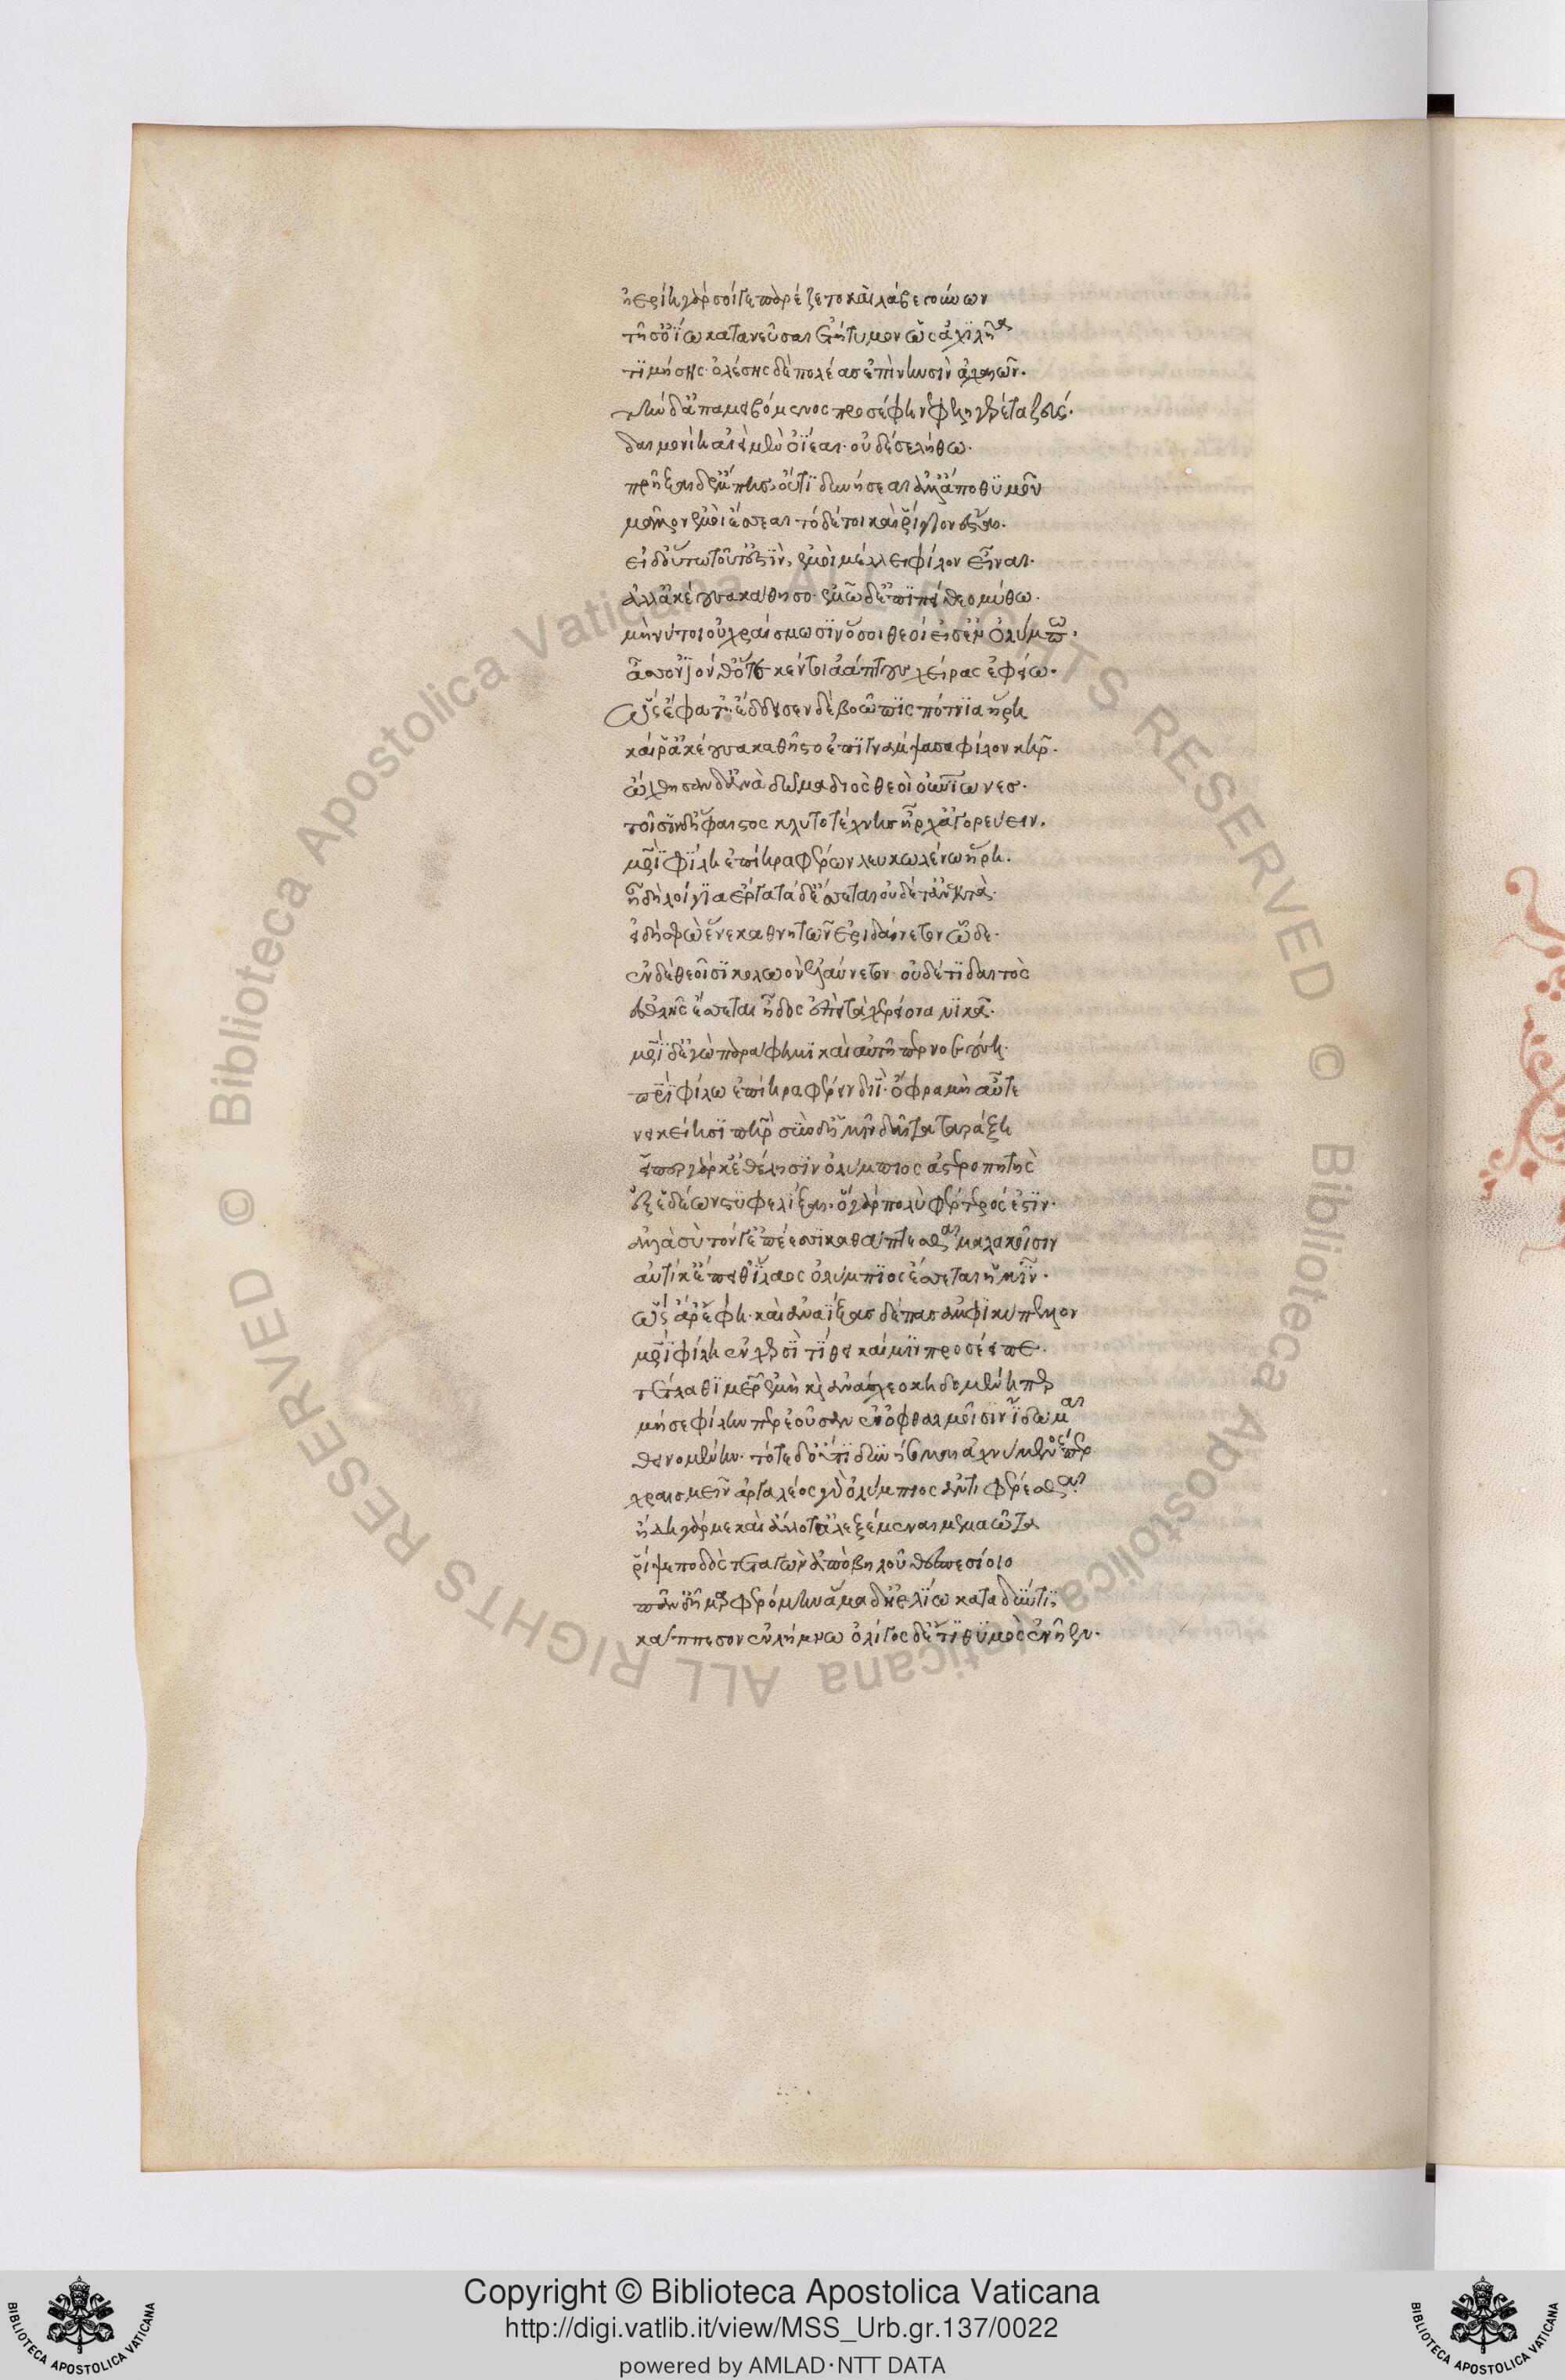 ἠερίη γὰρ σοί γε παρέζετο καὶ λάβε γούνων
τῇ σ' ὀΐω κατανεῦσαι ἐτήτυμον ὡς ἀχιλῆα
τιμήσῃς· ὀλέσῃς δὲ πολέας ἐπὶ νηυσὶν ἀχαιῶν.
τὴν δ' ἀπαμειβόμενος προσέφη νεφεληγερέτα ζεύς.
δαιμονίη αἰεὶ μὲν ὀΐεαι· οὐδέ σε λήθω.
πρῆξαι δ' ἔμπης οὔτι δυνήσεαι ἀλλ' ἀπὸ θυμοῦ
μᾶλλον ἐμοὶ ἔσεαι τὸ δέ τοι καὶ ῥίγιον ἔσται.
εἰ δ' οὕτω τοῦτ' ἐστὶν, ἐμοὶ μέλλει φίλον εἶναι.
ἀλλ' ἀκέουσα κάθησο· ἐμῷ δ' ἐπιπείθεο μύθω.
μή νύ τοι οὐ χραίσμωσιν ὅσοι θεοί εἰσ' ἐν ὀλύμπω.
ἆσσον ἰόνθ' ὅτε κέν τοι ἀάπτους χεῖρας ἐφείω.
ὣς ἔφατ'· ἔδδεισεν δὲ βοῶπις πότνια ἥρη
καί ῥ' ἀκέουσα καθῆστο ἐπιγνάμψασα φίλον κῆρ.
ὤχθησαν δ' ἀνὰ δῶμα διὸς θεοὶ οὐρανίωνες.
τοῖσιν δ' ἥφαιστος κλυτοτέχνης ἦρχ' ἀγορεύειν.
μητρὶ φίλη ἐπίηρα φέρων λευκωλένω ἥρη.
ἦ δὴ λοίγια ἔργα τάδ' ἔσσεται οὐδέ τ' ἀνεκτὰ.
εἰ δὴ σφὼ ἕνεκα θνητῶν ἐριδαίνετον ὧδε.
ἐν δὲ θεοῖσι κολωὸν ἐλαύνετον· οὐδέ τι δαιτὸς
ἐσθλῆς ἔσσεται ἦδος ἐπεὶ τὰ χερείονα νικᾶ.
μητρὶ δ' ἐγὼ παράφημι καὶ αὐτῇ περ νοεούσῃ.
πατρὶ φίλω ἐπίηρα φέρειν διῒ· ὄφρα μὴ αὖτε
νεικείησι πατὴρ σὺν δ' ἡμῖν δαῖτα ταράξη
εἴπερ γάρ κ' ἐθέλησιν ὀλύμπιος ἀστεροπητὴς
ἐξ ἑδέων στυφελίξαι. ὃ γὰρ πολὺ φέρτερός ἐστιν.
ἀλλὰ σὺ τόν γ' ἐπέεσσι καθάπτεσθαι μαλακοῖσιν
αὐτίκ' ἔπειθ' ἵλαος ὀλύμπιος ἔσσεται ἡμῖν.
ὣς ἄρ' ἔφη. καὶ ἀναΐξας δέπας ἀμφικύπελλον
μητρὶ φίλη ἐν χερσὶ τίθει καί μιν προσέειπε.
τέτλαθι μῆτερ ἐμὴ καὶ ἀνάσχεο κηδομένη περ
μή σε φίλην περ ἐοῦσαν ἐν ὀφθαλμοῖσιν ἴδωμαι
θεινομένην. τότε δ' οὔτι δυνήσομαι ἀχνύμενός περ
χραισμεῖν ἀργαλέος γὰρ ὀλύμπιος ἀντιφέρεσθαι.
ἤδη γάρ με καὶ ἄλλοτ' ἀλεξέμεναι μεμαῶτα
ῥῖψε ποδὸς τεταγὼν ἀπὸ βηλοῦ θεσπεσίοιο
πᾶν δ' ἦμαρ φερόμην ἅμα δ' ἠελίω καταδύντι,
κάππεσον ἐν λήμνω ὀλίγος δ' ἔτι θυμὸς ἐνῆεν.
Copyright © Biblioteca Apostolica Vaticana
http://digi.vatlib.it/view/MSS_Urb.gr.137/0022
powered by AMLAD·NTT DATA